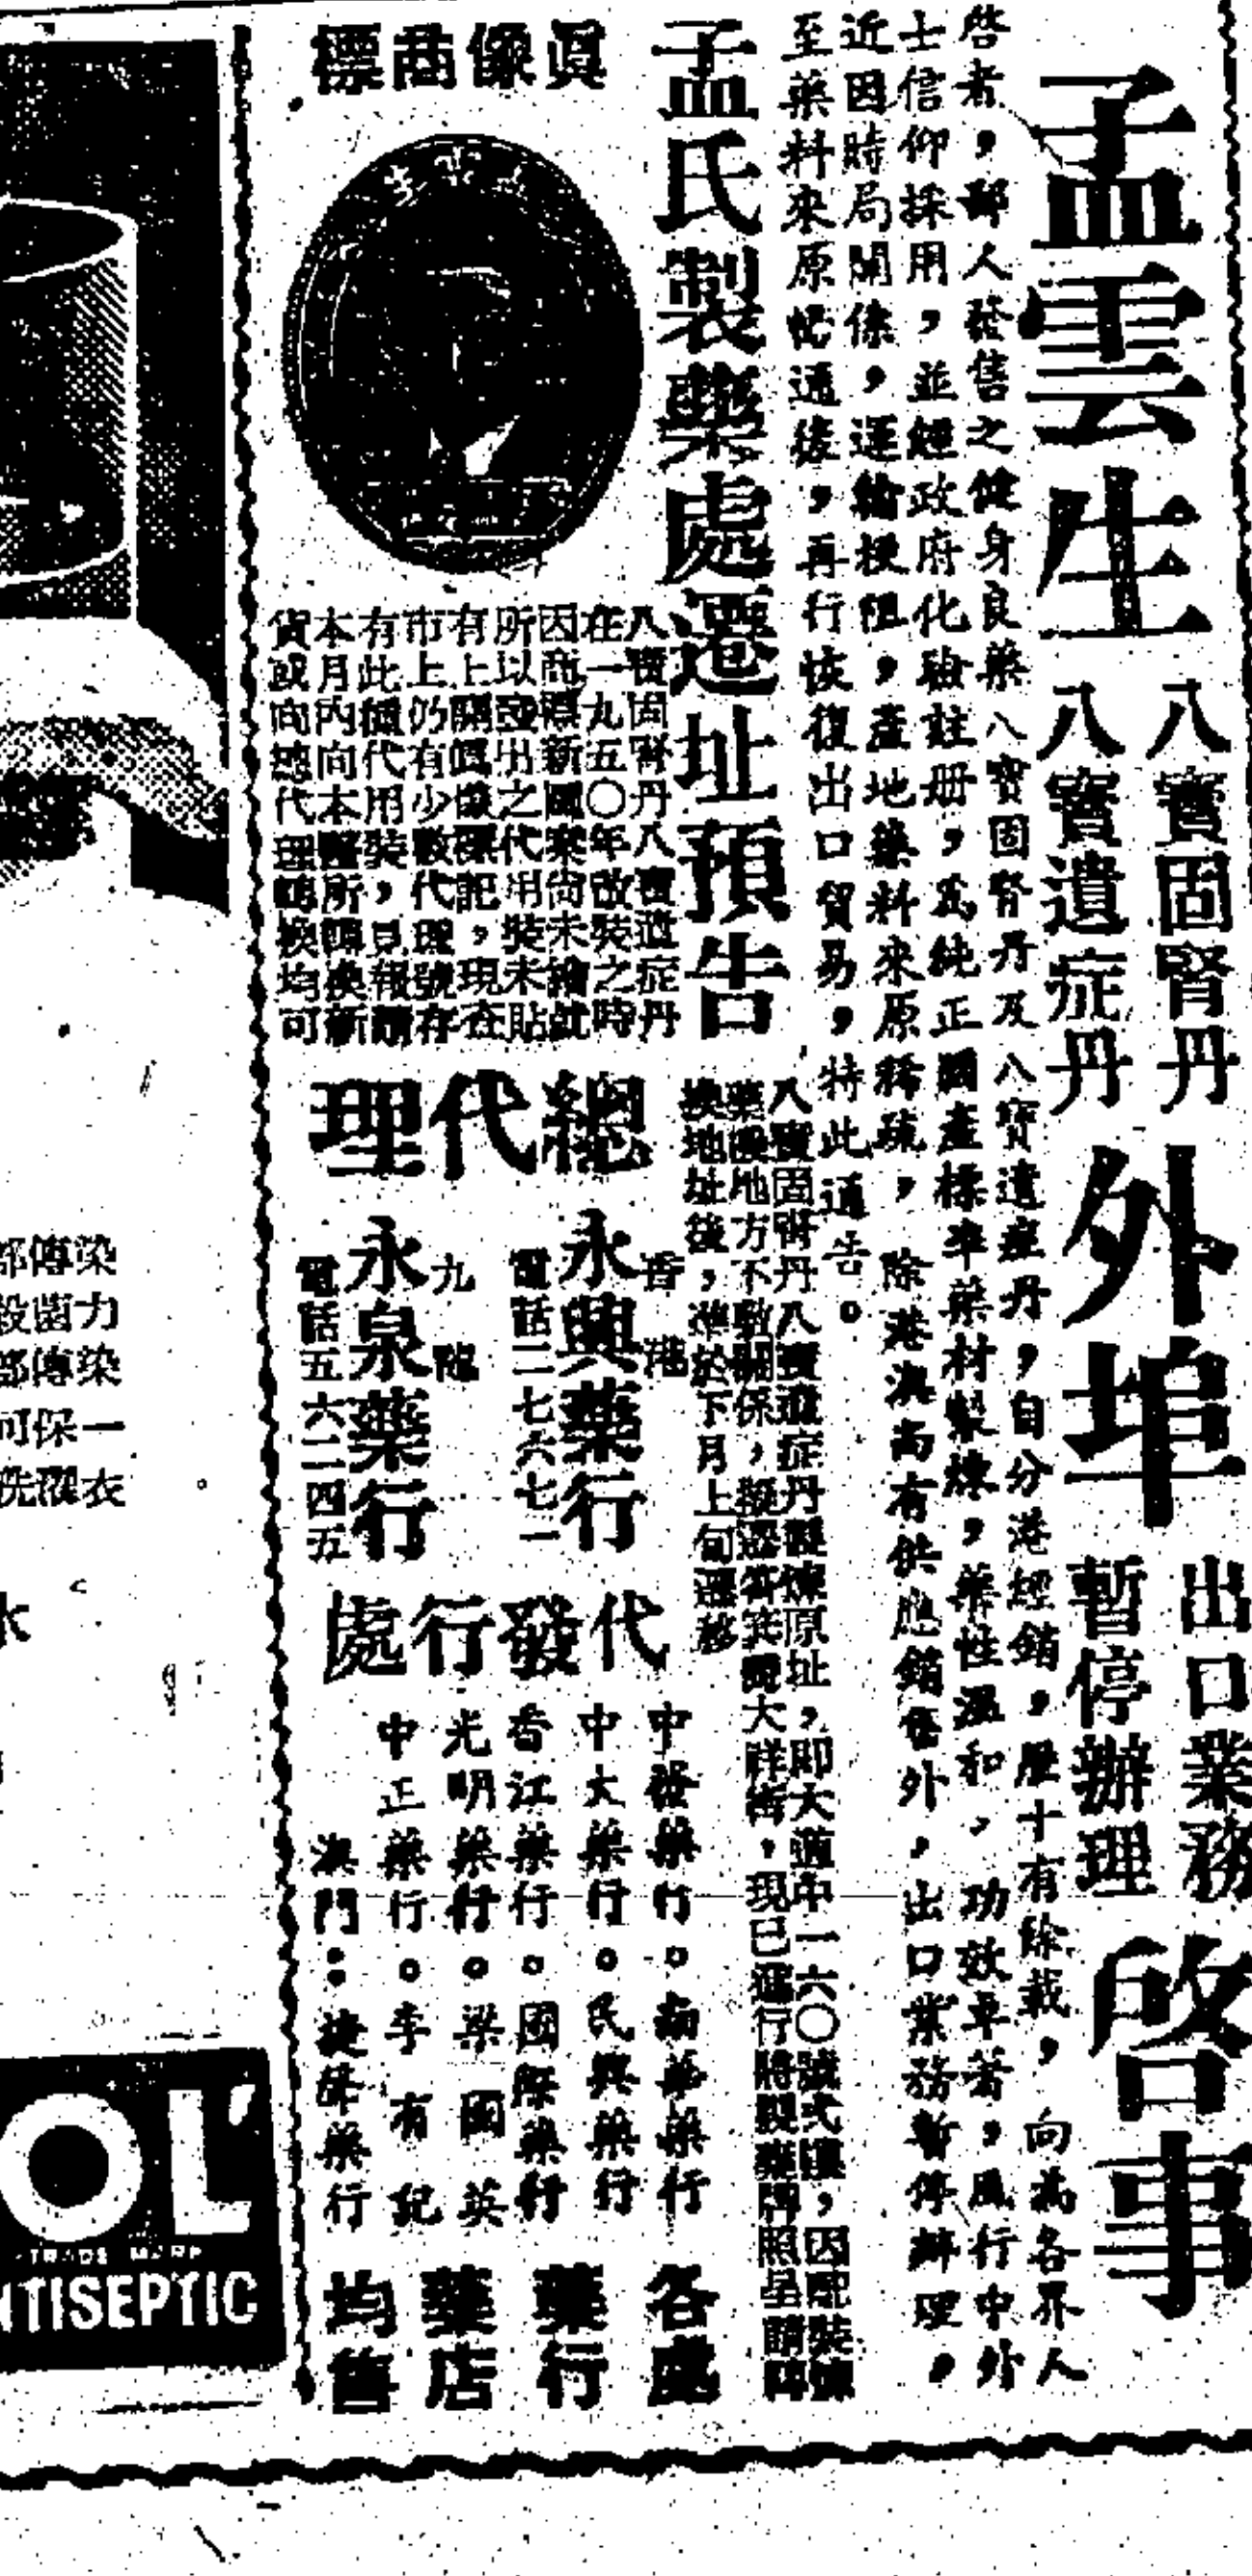 孟雲生
八寶固腎丹
八寶遺症丹
外埠
出口業務
暫停辦理
啓事
啓者，鄙人發售之健身良藥八寶固腎丹及八寶遺症丹，自分港經銷，歷十有餘載，向為各界人
士信仰採用，並經政府化驗註册，爲純正國產標準藥材製煉，藥性溫和，功效卓著，風行中外
近因時局關係，運輸梗阻，產地藥料來原稀疏，除港澳尚有供應銷售外，出口業務暫停辦理，
至藥料來原恢通後，再行恢復出口貿易，特此通告。
孟氏製藥處遷址預告
八寶固腎丹八寶遺症丹製煉原址，即大道中一六〇號弍樓，因配裝
藥地方不敷，現已進行將製藥牌照呈請
換地址後，準於下月上旬遷移
眞像商標
八寶固腎丹八寶遺症丹
在一九五〇年改裝之時
因商標新圖案尚未繪就
所以發出之代用裝未貼
有上開眞像標記，現在
市上仍有少數代理號存
有此種代用裝，見報請
本月內向本醫所調換新
貨或向總代理調換均可
總代理
香港
永興藥行
電話二七六七一
九龍
永泉藥行
電話五六二四五
代發行處
中發藥行。南華藥行
中大藥行。民興藥行
香江藥行。國際藥行
光明藥行。梁國英
中正藥行。李有記
澳門：捷成藥行
各處
藥行
藥店
均售
部傳染
殺菌力
部傳染
可保一
洗濯衣
水
OL
TRADE MARK
NTISEPTIC